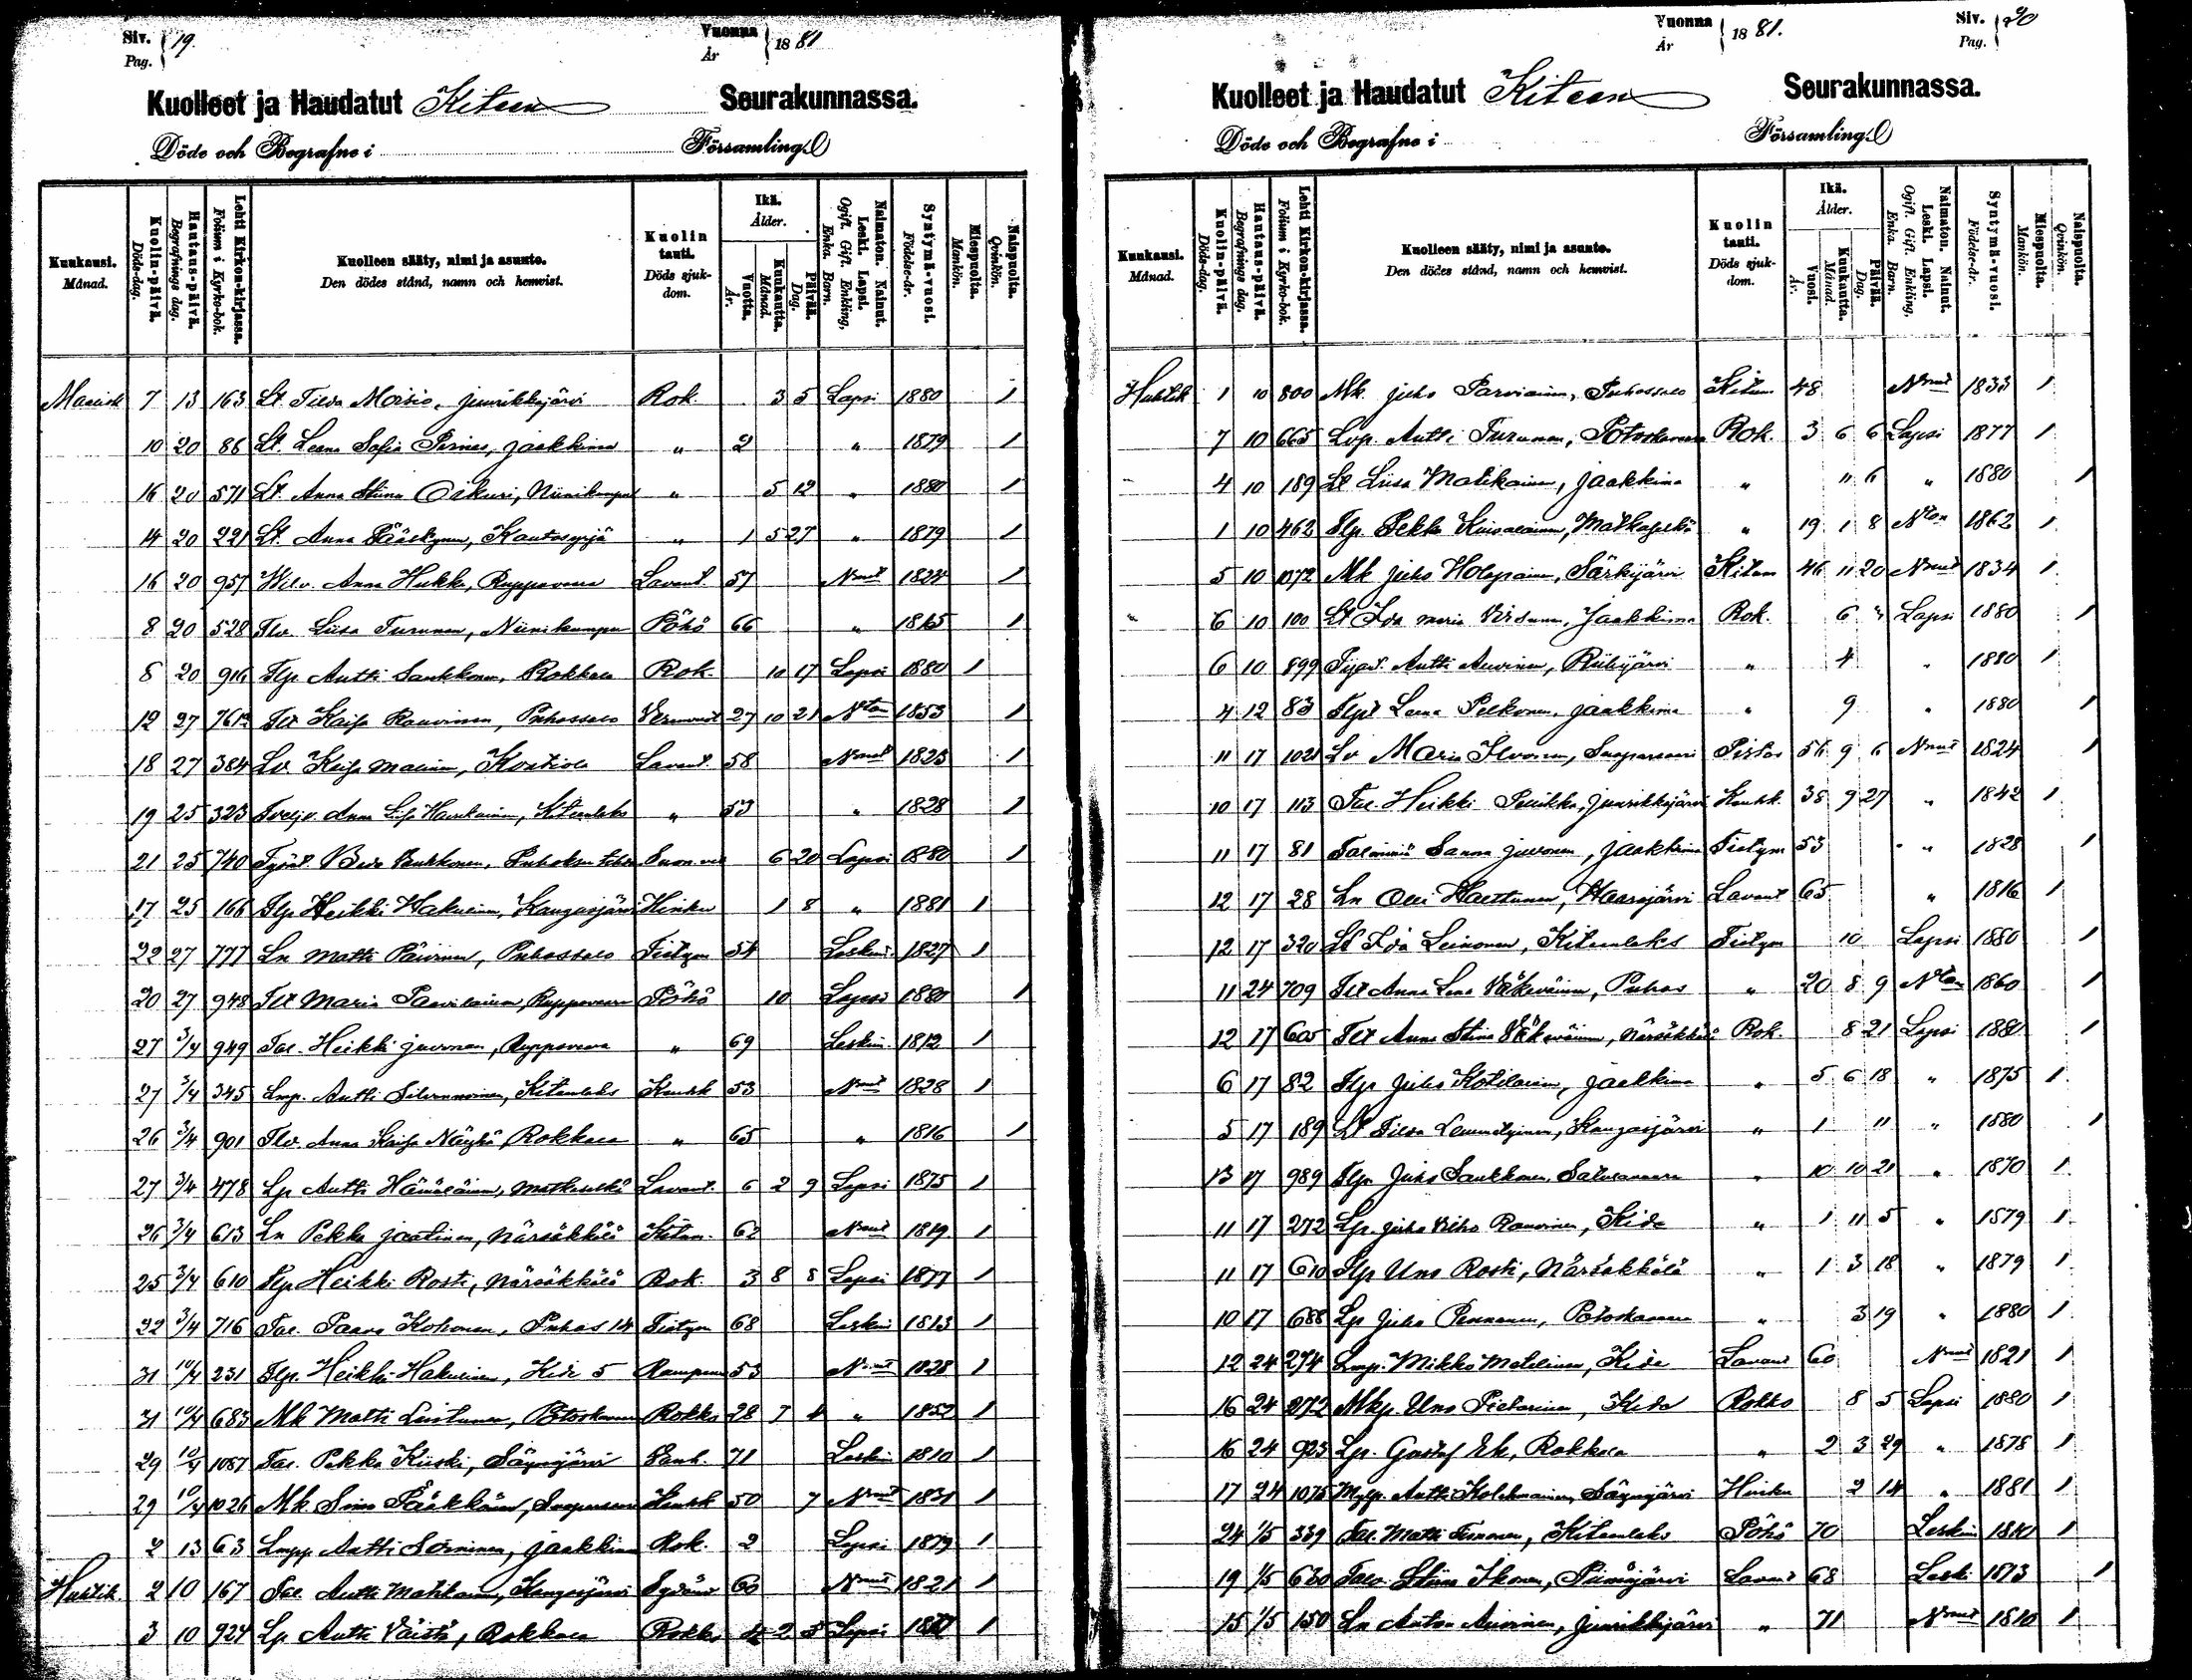 Siv. Pag. 19. Vuonna År 1881
Kuolleet ja Haudatut Kiteen Seurakunnassa.
Döde och Begrafne i Församling.
Kuukausi. Månad. Kuolin-päivä. Döds-dag. Hautaus-päivä. Begrafnings dag. Lehti Kirkon-kirjassa. Folium i Kyrko-bok. Kuolleen sääty, nimi ja asunto. Den dödes stånd, namn och hemvist. Kuolin tauti. Döds sjuk-dom. Ikä. Ålder. Vuotta. År. Kuukautta. Månad. Päivää. Dag. Naimaton. Nainut. Leski. Lapsi. Ogift. Gift. Enkling, Enka. Barn. Syntymä-vuosi. Födelse-år. Miespuolta. Mankön. Naispuolta. Qvinkön.
7 13 163 Lt Moisio, Juurikkajärvi Rok. 3 5 Lapsi 1880 1
10 20 86 Lt. Leena Sofia Pirnes, Jaakkima " 2 " 1879 1
16 20 571 Lt. Anna Stiina Oskuri, Niinikumpu " 5 12 " 1880 1
14 20 221 Lt. Anna Pääskynen, Kantosyrjä " 1 5 27 " 1879 1
16 20 957 Anna Hukka, Ruppovaara Lavant. 57 Nnut 1824 1
8 20 528 Tlv. Liisa Turunen, Niinikumpu Pöhö 66 " 1815 1
8 20 916 Tlp Antti Saukkonen, Rokkala Rok. 10 17 Lapsi 1880 1
12 27 761 Tlt Kaisa Rauvinen, Puhossalo 27 10 21 Nton 1853 1
18 27 384 Lv. Kaisa Malinen, Kontiola Lavant. 58 Nnut 1823 1
19 25 323 Anna Kiteenlaks " 53 " 1828 1
21 25 740 6 20 Lapsi 1880 1
17 25 166 Tlp Heikki Hakulinen, Kangasjärvi Hinku 1 8 " 1881 1
22 27 777 Ln Matti Päivinen, Puhossalo 54 Leskim. 1827 1
20 27 948 Tlt Maria Paavilainen, Ruppovaara Pöhö 10 Lapsi 1880 1
27 3/4 949 Tal. Heikki Juvonen, Ruppovaara " 69 Leskim. 1812 1
27 3/4 345 Lmp. Antti Silvennoinen, Kiteenlaks Keuhk 53 Nnut 1828 1
26 3/4 901 Tlv. Anna Kaisa Rokkala " 65 " 1816 1
27 3/4 478 Lp Antti Hämäläinen, Matkaselkä Lavant. 6 2 9 Lapsi 1875 1
26 3/4 613 Ln Pekka Jaatinen, Närsäkkälä 62 Nnut 1819 1
25 3/4 610 Tlp Heikki Rosti, Närsäkkälä Rok. 3 8 8 Lapsi 1877 1
22 3/4 716 Tal. Paavo Kohonen, Puhos 14 68 Leskim 1813 1
31 10/4 231 Tlp. Heikki Hakulinen, Kide 5 53 Nnut 1828 1
31 10/4 683 Mk Matti Potoskavaara Rokko 28 7 4 " 1852 1
29 10/4 1087 Tal. Pekka Kiiski, Säynejärvi 71 Leskim 1810 1
29 10/4 1026 Mk Simo Pääkkönen, Suoparsaari Keuhk 50 7 Nnut 1831 1
2 13 63 Antti Sorninen, Jaakkima Rok. 2 Lapsi 1879 1
Huhtik. 2 10 167 Tal. Antti Matikainen, Kangasjärvi 60 Nnut 1821 1
3 10 924 Lp Antti Väistö, Rokkala Rokko 4 2 5 Lapsi 1 
Siv. Pag. 20 Vuonna År 1881.
Kuolleet ja Haudatut Kiteen Seurakunnassa.
Döde och Begrafne i Församling.
Kuukausi. Månad. Kuolin-päivä. Döds-dag. Hautaus-päivä. Begrafnings dag. Lehti Kirkon-kirjassa. Folium i Kyrko-bok. Kuolleen sääty, nimi ja asunto. Den dödes stånd, namn och hemvist. Kuolin tauti. Döds sjuk-dom. Ikä. Ålder. Vuosi. År. Kuukautta. Månad. Päivää. Dag. Naimaton. Nainut. Leski. Lapsi. Ogift. Gift. Enkling, Enka. Barn. Syntymä-vuosi. Födelse-år. Miespuolta. Mankön. Naispuolta. Qvinkön.
Huhtik 1 10 800 Mk Juho Parviainen, Puhossalo 48 Nnut 1833 1
7 10 665 Lvp. Antti Turunen, Potoskavaara Rok. 3 6 6 Lapsi 1877 1
4 10 189 Lt Liisa Matikainen, Jaakkima " 11 6 " 1880 1
1 10 462 Tlp. Pekka Matkaselkä " 19 1 8 Nton 1862 1
5 10 1072 Mk Juho Holopainen, Särkijärvi 46 11 20 Nnut 1834 1
6 10 100 Lt Ida Maria Jaakkima Rok. 6 " Lapsi 1880 1
6 10 899 Antti Auvinen, Riihijärvi " 4 " 1880 1
4 12 83 Leena Pelkonen, Jaakkima " 9 " 1880 1
11 17 1021 Lv Maria Ilvonen, Suoparsaari Pistos 56 9 6 Nnut 1824 1
10 17 113 Tal. Heikki Juurikkajärvi Keuhk. 38 9 27 " 1842 1
11 17 81 Sanna Juvonen, Jaakkima 53 " 1828 1
12 17 28 Ln Olli Haarajärvi Lavant 65 " 1816 1
12 17 320 Lt Ida Leinonen, Kiteenlaks 10 Lapsi 1880 1
11 24 709 Tlt Anna Lena Väkeväinen, Puhos " 20 8 9 Nton 1860 1
12 17 605 Tlt Anna Stina Väkeväinen, Närsäkkälä Rok. 8 21 Lapsi 1880 1
6 17 82 Tlp Juho Kotilainen, Jaakkima " 5 6 18 " 1875 1
5 17 189 Lt Lemmetyinen, Kangasjärvi " 1 11 " 1880 1
13 17 989 Tlp. Juho Saukkonen, " 10 10 21 " 1870 1
11 17 272 Lp. Juho Vilho Rauvinen, Kide " 1 11 5 " 1879 1
11 17 610 Tlp Uno Rosti, Närsäkkälä " 1 3 18 " 1879 1
10 17 688 Lp Juho Pennanen, Potoskavaara " 3 19 " 1880 1
12 24 274 Lmp. Mikko Matilinen, Kide Lavant 60 Nnut 1821 1
16 24 272 Mkp. Uno Pietarinen, Kide Rokko 8 5 Lapsi 1880 1
16 24 923 Lp. Gustaf Ek, Rokkala " 2 3 29 " 1878 1
17 24 1075 Antti Kolehmainen, Säynejärvi Hinku 2 14 " 1881 1
24 1/5 339 Tal. Matti Kiteenlaks Pöhö 70 Leskim 1810 1
19 1/5 630 Talv. Stiina Ikonen, Piimäjärvi Lavant 68 Leski 1813 1
15 1/5 150 Ln Anton Auvinen, Juurikkajärvi " 71 Nnut 1810 1